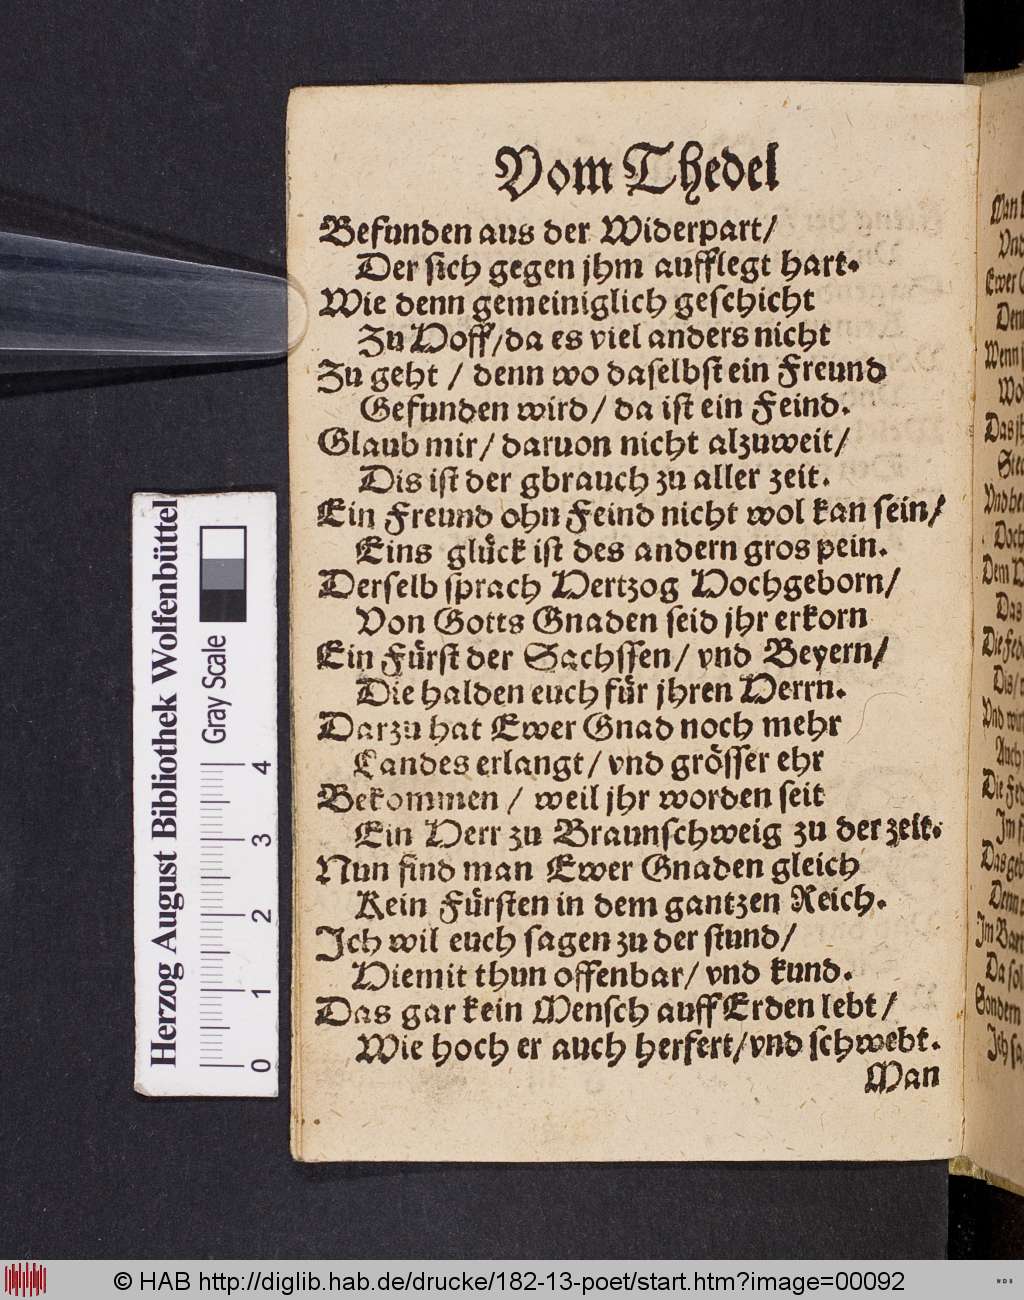 Vom Thedel
Befunden aus der Widerpart/
Der sich gegen jhm aufflegt hart.
Wie denn gemeiniglich geschicht
Zu Hoff/da es viel anders nicht
Zu geht / denn wo daselbst ein Freund
Gefunden wird/ da ist ein Feind.
Glaub mir/ daruon nicht alzuweit/
Dis ist der gbrauch zu aller zeit.
Ein Freund ohn Feind nicht wol kan sein/
Eins glück ist des andern gros pein.
Derselb sprach Hertzog Hochgeborn/
Von Gotts Gnaden seid jhr erkorn
Ein Fürst der Sachssen/ vnd Beyern/
Die halden euch für jhren Herrn.
Darzu hat Ewer Gnad noch mehr
Landes erlangt/ vnd grösser ehr
Bekommen / weil jhr worden seit
Ein Herr zu Braunschweig zu der zeit.
Nun find man Ewer Gnaden gleich
Kein Fürsten in dem gantzen Reich.
Ich wil euch sagen zu der stund/
Hiemit thun offenbar/ vnd kund.
Das gar kein Mensch auff Erden lebt/
Wie hoch er auch herfert/vnd schwebt.
Man
Man
Vnd
Ewer
Denn
Wenn
Das
Vnd
Doch
Dem
Das
Dis/
Vnd
Auch
Im
Denn
Im
Da
Sondern
Ich
Herzog August Bibliothek Wolfenbüttel
Gray Scale
0 1 2 3 4
© HAB http://diglib.hab.de/drucke/182-13-poet/start.htm?image=00092
WDB